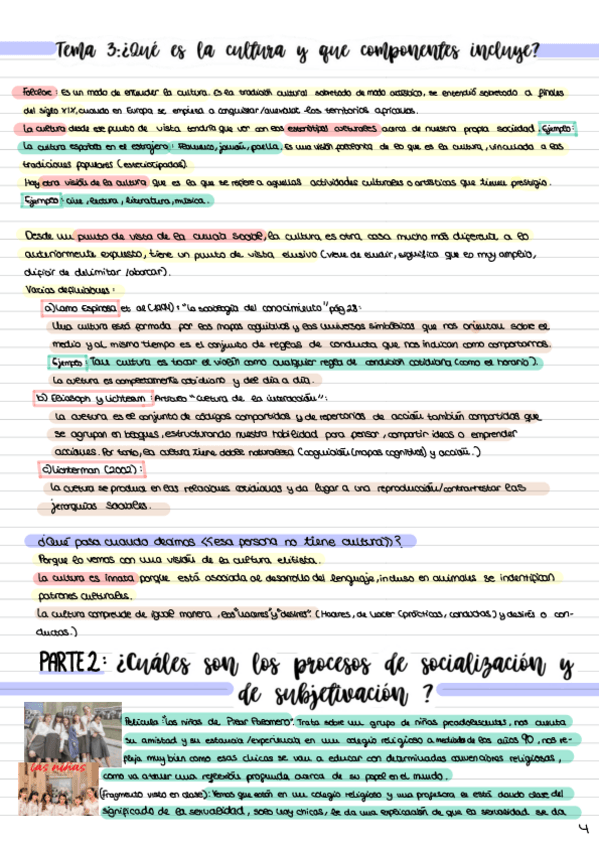 Tema 3: ¿Qué es la cultura y que componentes incluye?
Folclore: Es un modo de entender la cultura. Es la tradición cultural sobretodo de modo artístico, se entendió sobretodo a finales
del siglo XIX, cuando en Europa se empieza a conquistar/aumentar los territorios africanos.
La cultura desde este punto de vista tendría que ver con los estereotipos culturales acerca de nuestra propia sociedad. Ejemplo:
La cultura española en el extrajero: Flamenco, jamón, paella. Es una visión folclórica de lo que es la cultura, vinculada a las
tradiciones populares (estereotipadas).
Hay otra visión de la cultura que es la que se refiere a aquellas actividades culturales o artísticas que tienen prestigio.
Ejemplo: cine, lectura, literatura, música.
Desde un punto de vista de la ciencia social, la cultura es otra cosa mucho más diferente a lo
anteriormente expuesto, tiene un punto de vista elusivo (viene de eludir, significa que es muy amplio,
difícil de delimitar /abarcar).
Varias definiciones:
a) Lamo Espinosa et al : "La sociología del conocimiento" pág 28:
Una cultura está formada por los mapas cognitivos y los universos simbólicos que nos orientan sobre el
medio y al mismo tiempo es el conjunto de reglas de conducta que nos indican como comportarnos.
Ejemplo: Tan cultura es tocar el violín como cualquier regla de condición cotidiana (como el horario).
La cultura es completamente cotidiano y del día a día.
b) Eliasoph y Lichterm : Artículo "Cultura de la interacción":
La cultura es el conjunto de códigos compartidos y de repertorios de acción también compartidos que
se agrupan en bloques, estructurando nuestra habilidad para pensar, compartir ideas o emprender
acciones. Por tanto, la cultura tiene doble naturaleza (cognición (mapas cognitivos) y acción.)
c) Lichterman (2002):
La cultura se produce en las relaciones cotidianas y da lugar a una reproducción/contrarrestar las
jerarquías sociales.
¿Qué pasa cuando decimos <<esa persona no tiene cultura>>?
Porque lo vemos con una visión de la cultura elitista.
La cultura es innata porque está asociada al desarrollo del lenguaje, incluso en animales se indentifican
patrones culturales.
La cultura comprende de igual manera, los "haceres" y "desires". (Haceres, de hacer (prácticas, conductas) y desires o con-
ductas.)
PARTE 2: ¿Cuáles son los procesos de socialización y
de subjetivación ?
las niñas
Película: "las niñas de Pilar Palomero". Trata sobre un grupo de niñas preadolescentes, nos cuenta
su amistad y su estancia/experiencia en un colegio religioso a mediados de los años 90, nos re-
fleja muy bien como esas chicas se van a educar con determinadas convenciones religiosas,
como va a tener una reflexión profunda acerca de su papel en el mundo.
(Fragmento visto en clase): Vemos que están en un colegio religioso y una profesora es está dando clase del
significado de la sexualidad, solo hay chicas, se da una explicación de que la sexualidad se da
4